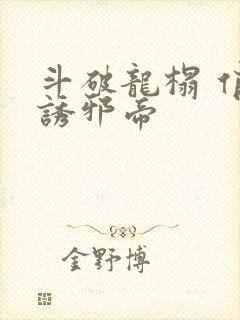 斗破龍榻
誘邪帝
金野博